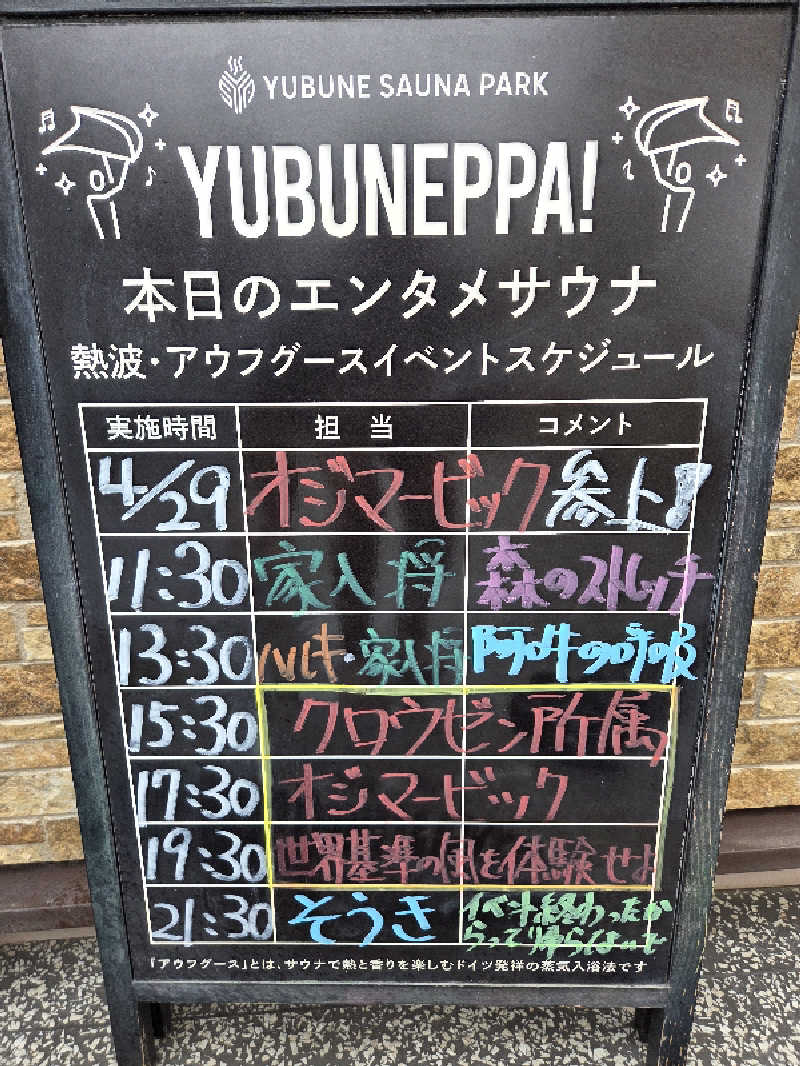 YUBUNE SAUNA PARK
YUBUNEPPA!
本日のエンタメサウナ
熱波・アウフグースイベントスケジュール
実施時間 担当 コメント
4/29 オジマービック 参上!
11:30 家入将 森のストレッチ
13:30 ハルキ・家入将 阿吽の呼吸
15:30 クロウゼン所属
17:30 オジマービック
19:30 世界基準の風を体験せよ
21:30 そうき イベント終わったか
らって帰らはいで
「アウフグース」とは、サウナで熱と香りを楽しむドイツ発祥の蒸気入浴法です